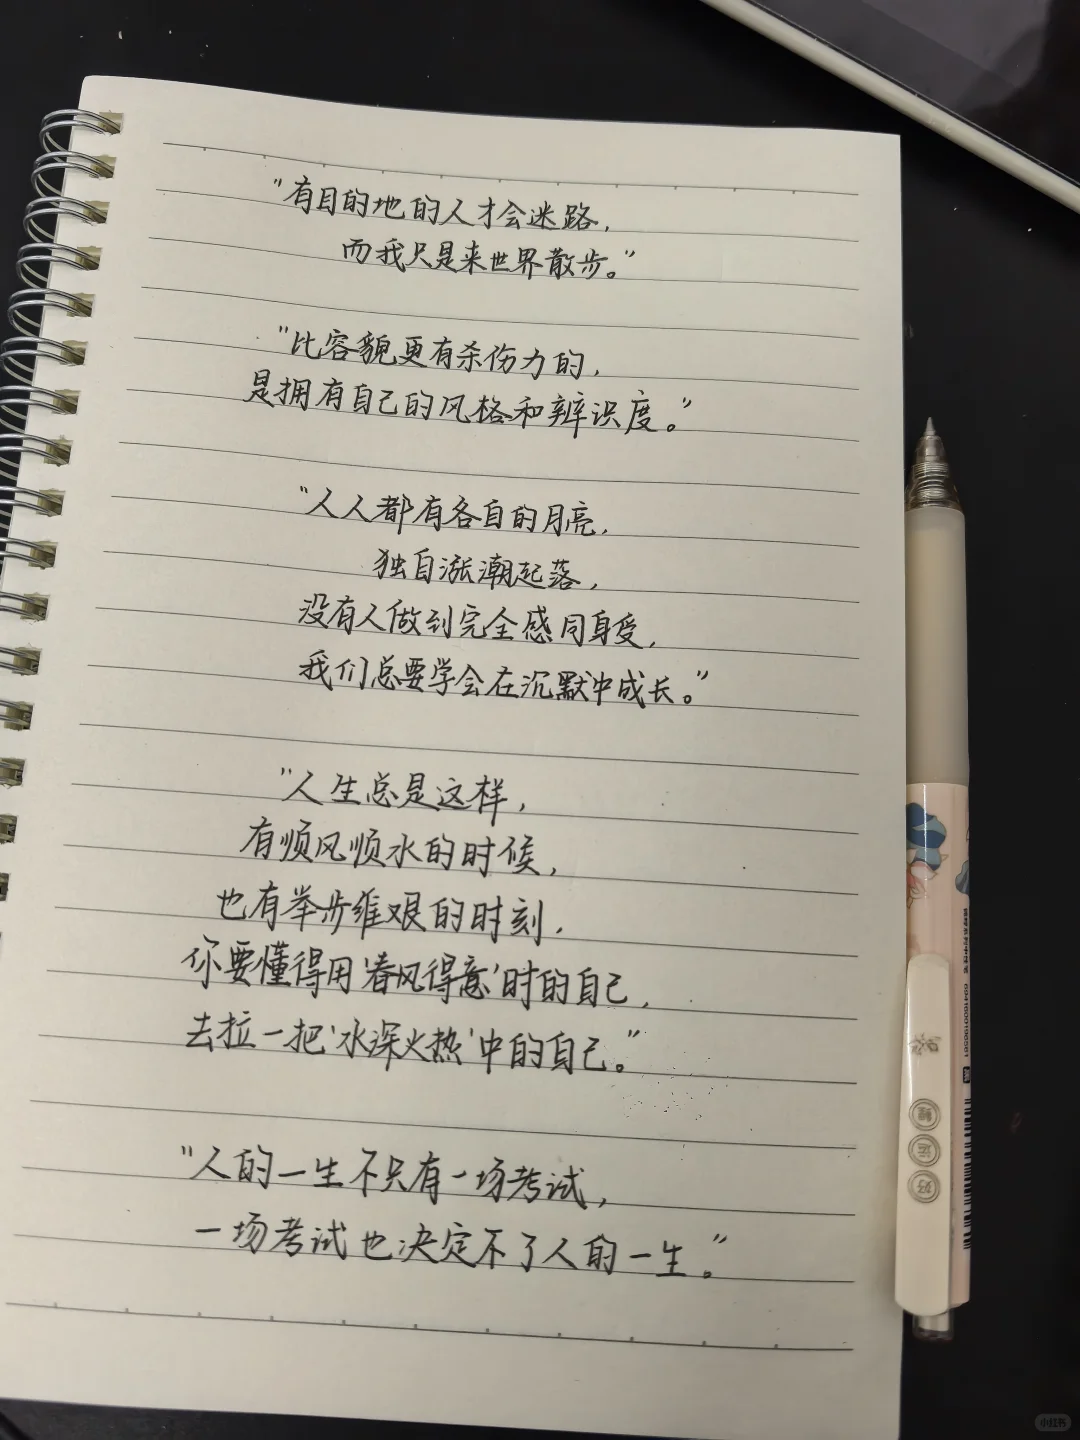 "有目的地的人才会迷路,
而我只是来世界散步。"
"比容貌更有杀伤力的,
是拥有自己的风格和辨识度。"
"人人都有各自的月亮,
独自涨潮起落,
没有人做到完全感同身受,
我们总要学会在沉默中成长。"
"人生总是这样,
有顺风顺水的时候,
也有举步维艰的时刻,
你要懂得用'春风得意'时的自己,
去拉一把'水深火热'中的自己。"
"人的一生不只有一场考试,
一场考试也决定不了人的一生。"
好运
小红书